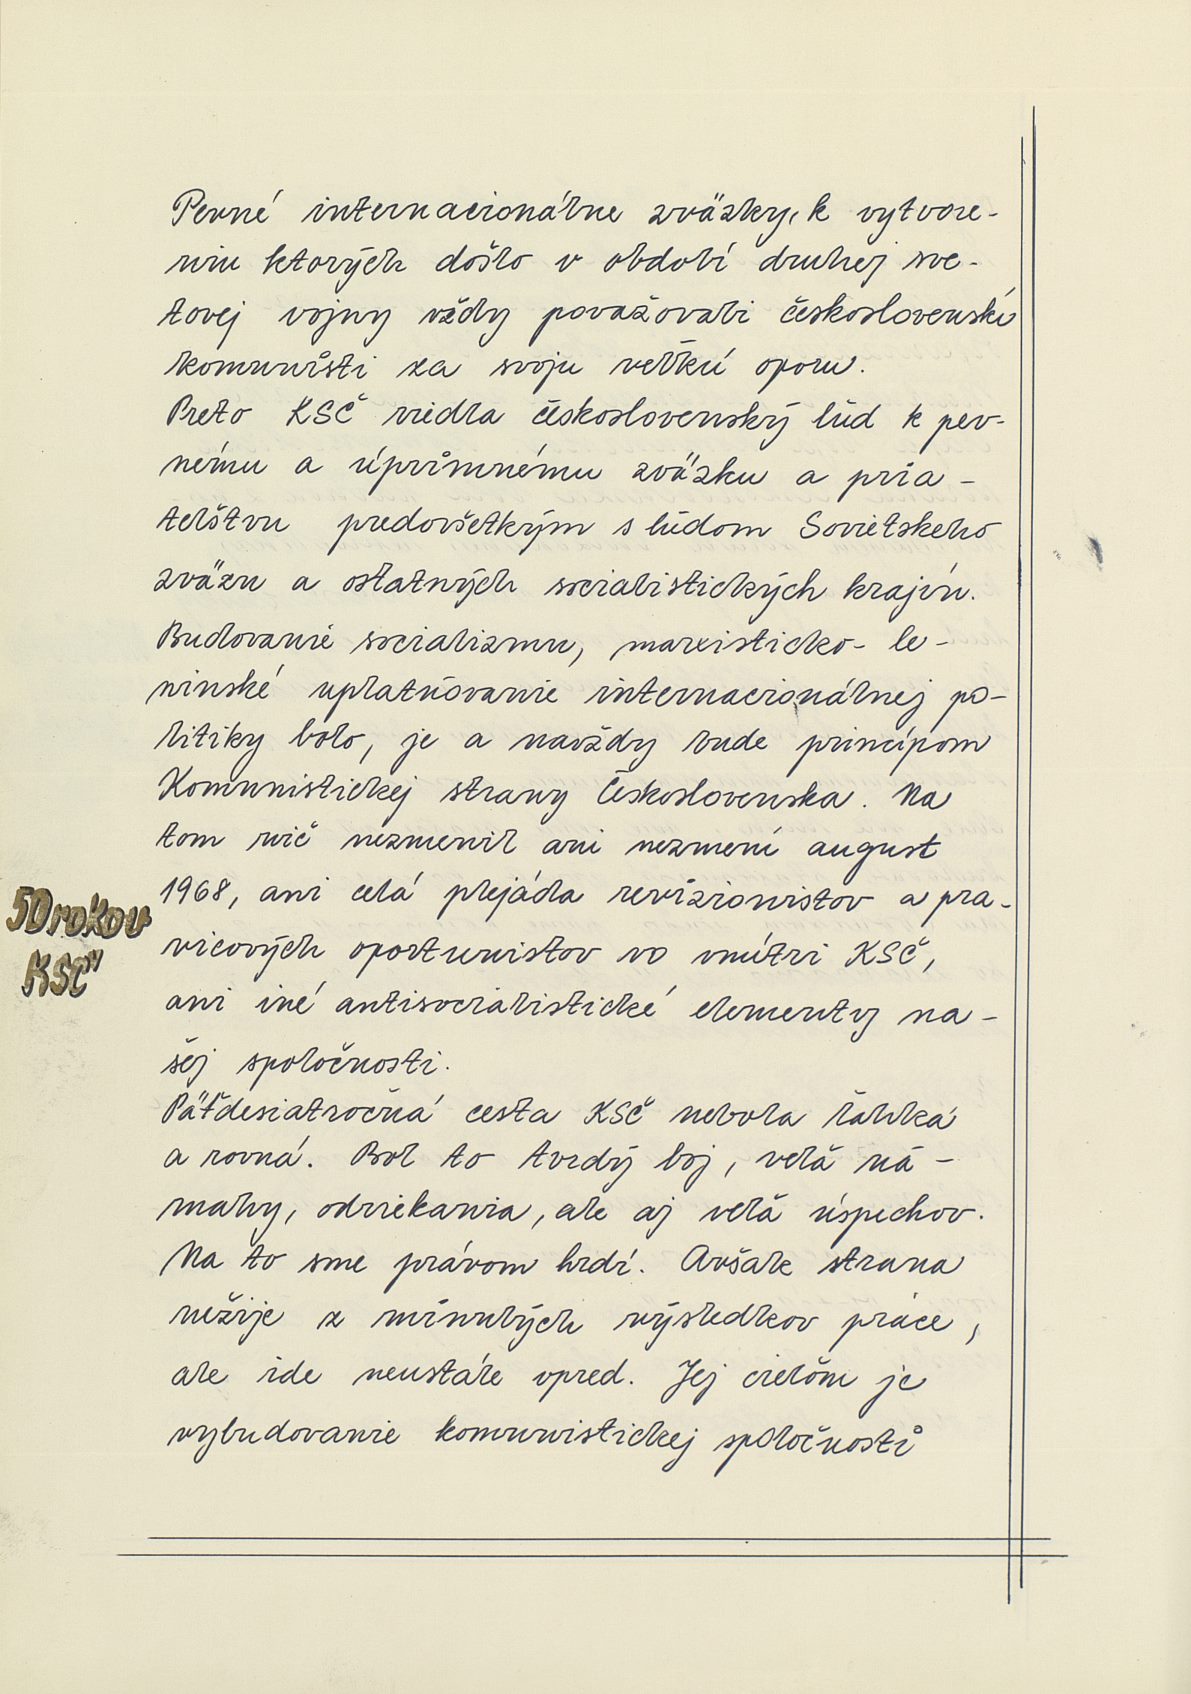 Pevné internacionálne zväzky, k vytvore-
niu ktorých došlo v období druhej sve-
tovej vojny vždy považovali československí
komunisti za svoju veľkú oporu.
Preto KSČ viedla československý ľud k pev-
nému a úprimnému zväzku a pria-
teľstvu predovšetkým s ľudom Sovietskeho
zväzu a ostatných socialistických krajín.
Budovanie socializmu, marxisticko-le-
ninské uplatňovanie internacionálnej po-
litiky bolo, je a navždy bude princípom
Komunistickej strany Československa. Na
tom nič nezmenil ani nezmení august
50 rokov
KSČ
1968, ani celá plejáda revizionistov a pra-
vicových oportunistov vo vnútri KSČ,
ani iné antisocialistické elementy na-
šej spoločnosti.
Päťdesiatročná cesta KSČ nebola ľahká
a rovná. Bol to tvrdý boj, veľa ná-
mahy, odriekania, ale aj veľa úspechov.
Na to sme právom hrdí. Avšak strana
nežije z minulých výsledkov práce,
ale ide neustále vpred. Jej cieľom je
vybudovanie komunistickej spoločnosti